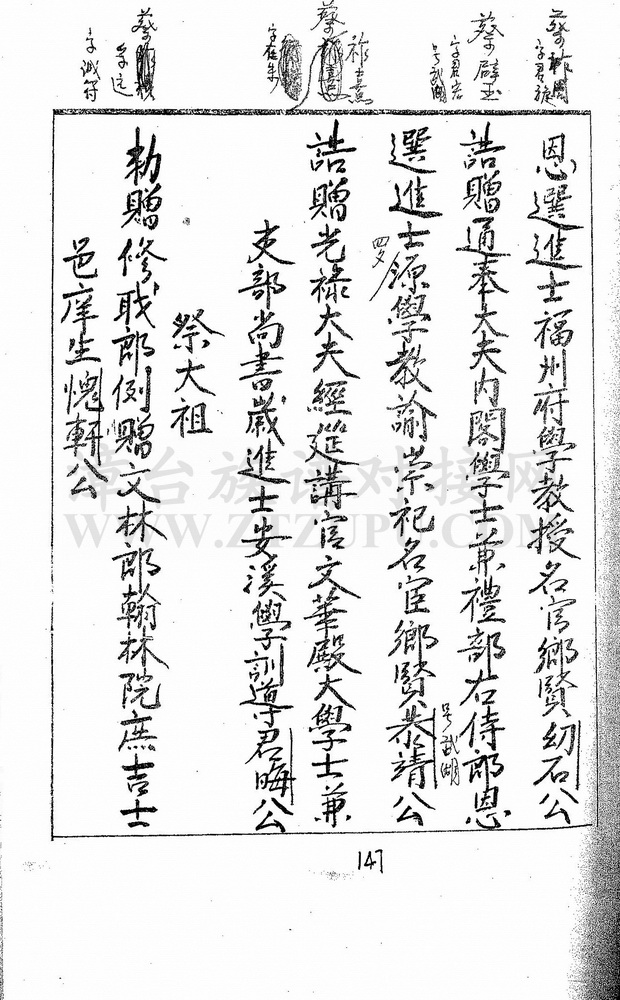 蔡祚周
字君旋
蔡璧玉
字君宏
号武湖
祚熹
蔡
字在朱
蔡
字远
字诚符
恩選進士福州府學教授名宦鄉賢幼石公
誥贈通奉大夫內閣學士兼禮部右侍郎恩
選進士源學教諭崇祀名宦鄉賢恭靖公
四文
号武湖
誥贈光禄大夫經筵講官文華殿大學士兼
吏部尚書歲進士安溪學訓導君晦公
祭大祖
勅贈修职郎例贈文林郎翰林院庶吉士
邑庠生愧軒公
147
漳台族谱对接网
WWW.ZTZUPU.COM